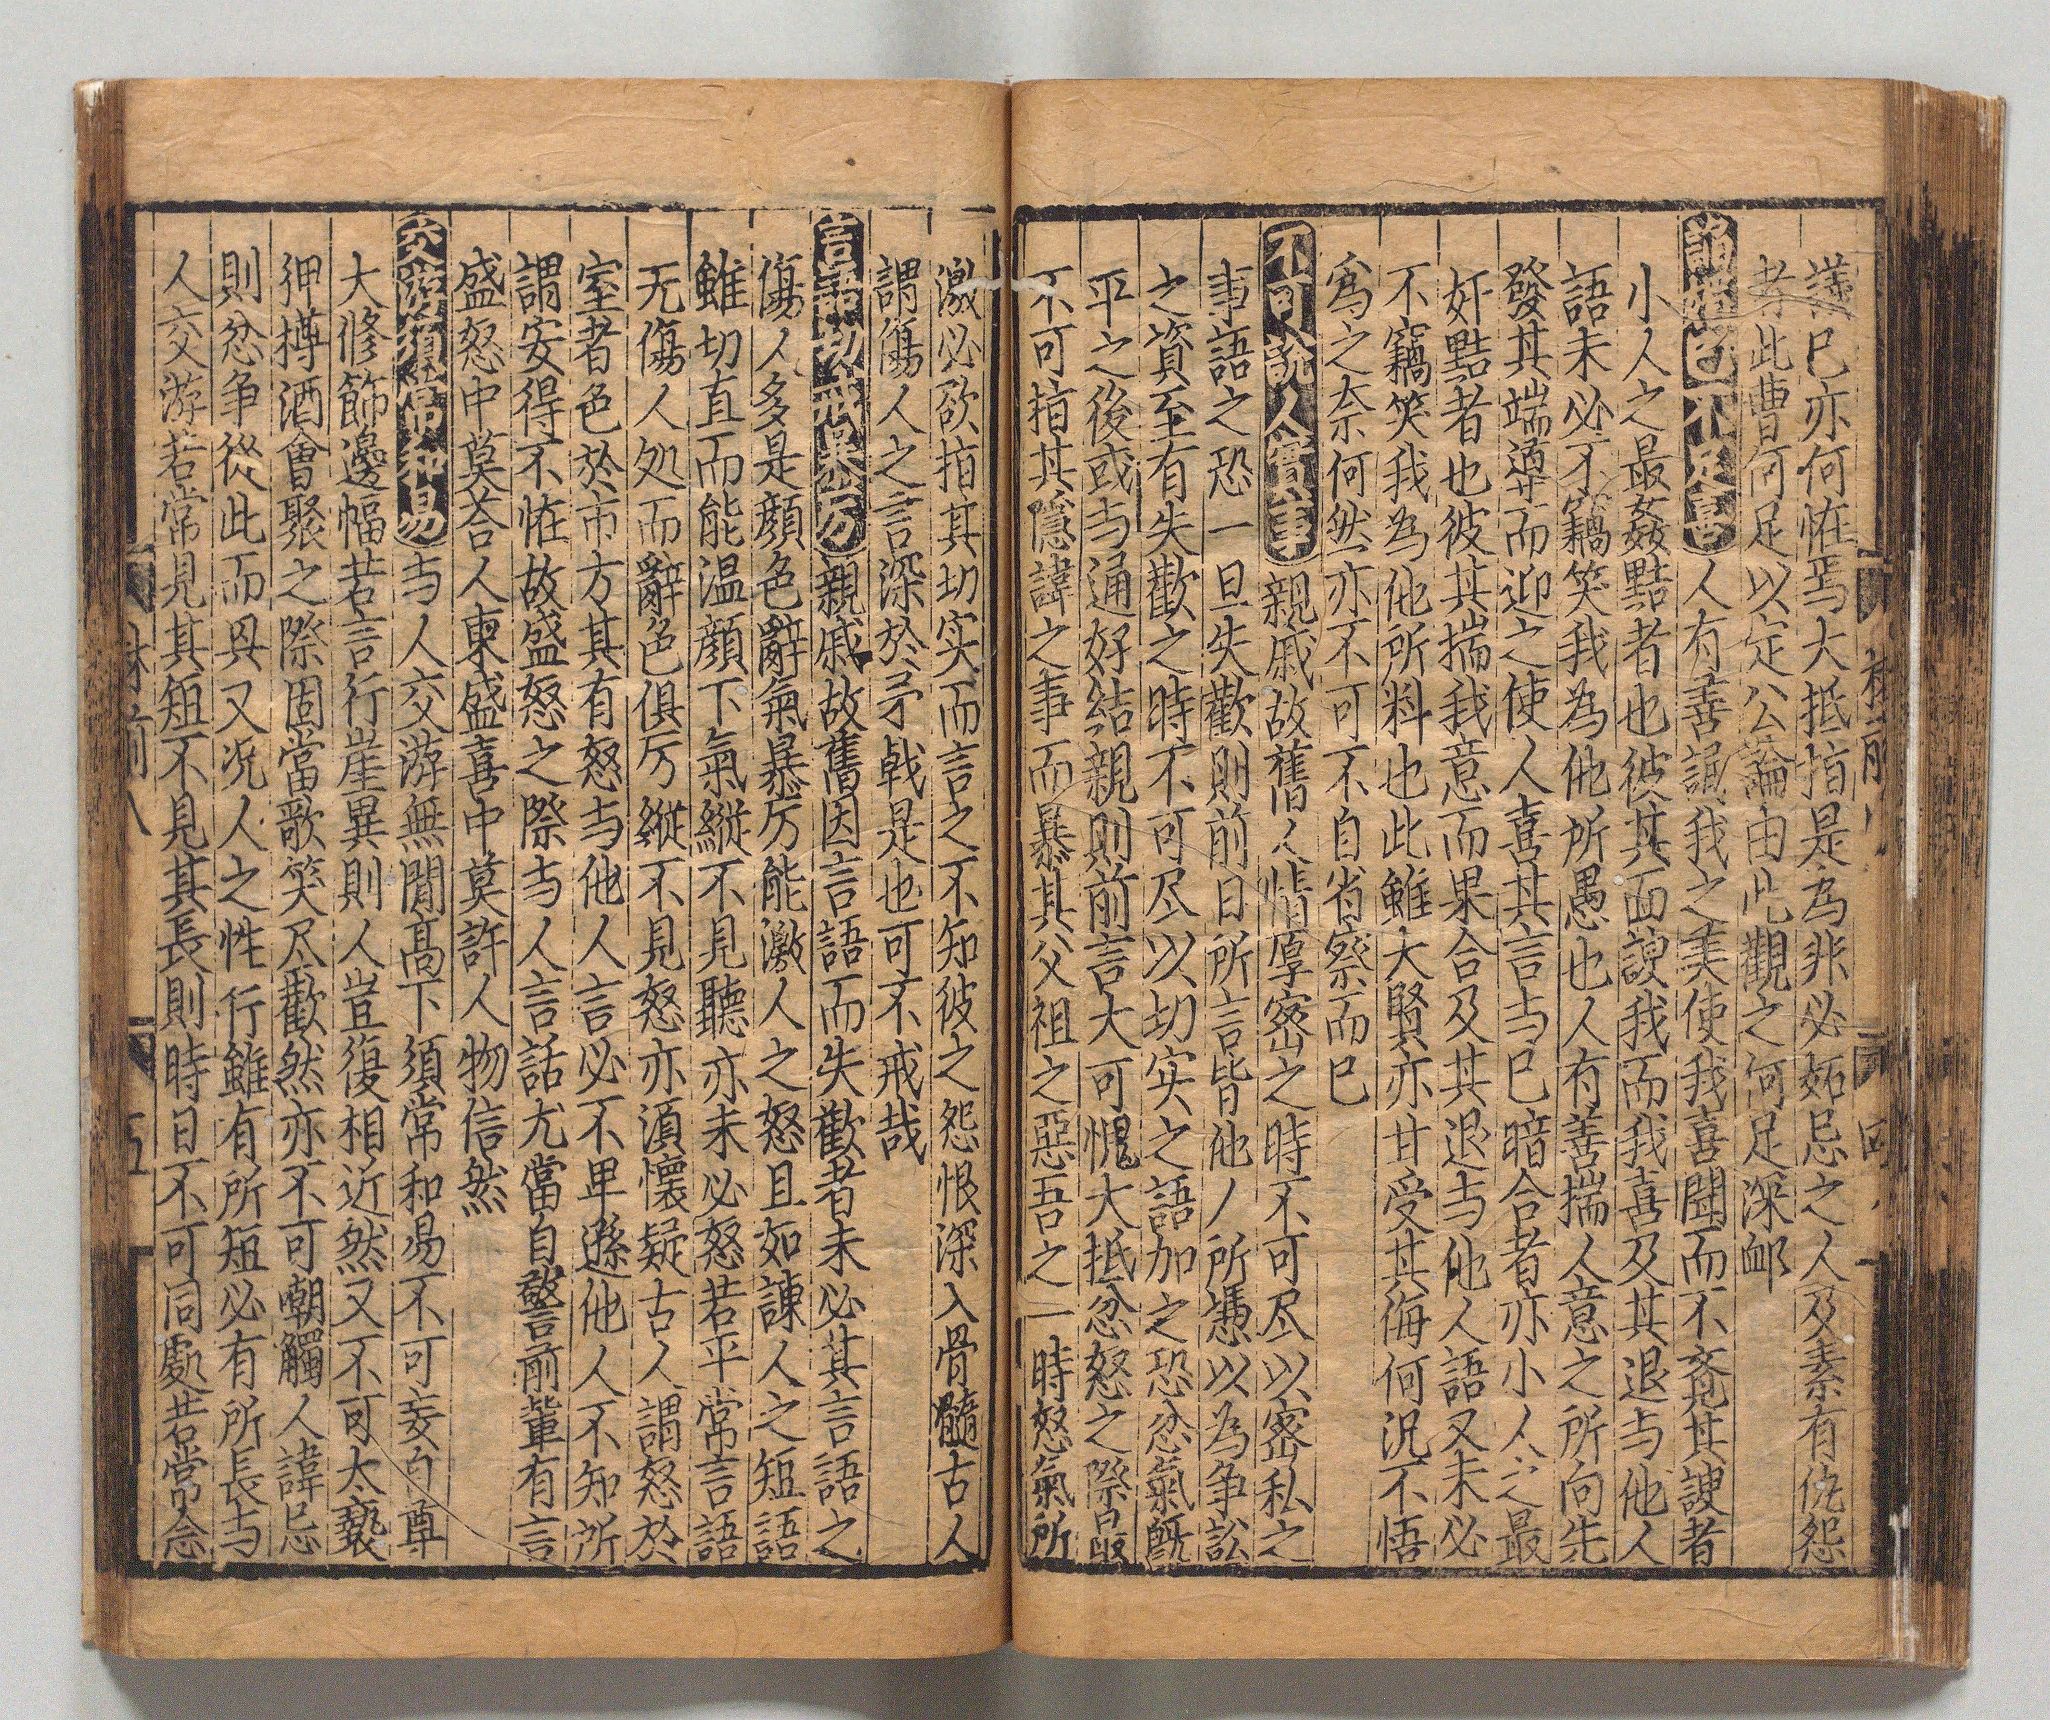 議已亦何恠焉大抵指是為非必妬忌之人及素有仇怨
者此曹何足以定公論由此觀之何足深卹
人有善誦我之美使我喜聞而不覺其諛者
小人之最姦黠者也彼其面諛我而我喜及其退与他人
語未必不竊笑我為他所愚也人有善揣人意之所向先
發其端導而迎之使人喜其言与已暗合者亦小人之最
奸黠者也彼其揣我意而果合及其退与他人語又未必
不竊笑我為他所料也此雖大賢亦甘受其侮何況不悟
為之奈何然亦不可不自省察而已
不可說人實事親戚故舊人情厚密之時不可尽以密私之
事語之恐一旦失歡則前日所言皆他人所憑以為争訟
之資至有失歡之時不可尽以切实之語加之恐忿氣既
平之後或与通好結親則前言大可愧大抵忿怒之際最
不可指其隱諱之事而暴其父祖之惡吾之一時怒氣所
激必欲指其切实而言之不知彼之怨恨深入骨髓古人
謂傷人之言深於矛戟是也可不戒哉
言語切戒暴厉親戚故舊因言語而失歡者未必其言語之
傷人多是顔色辭氣暴厉能激人之怒且如諫人之短語
雖切直而能温顔下氣縱不見聽亦未必怒若平常言語
无傷人処而辭色俱厉縱不見怒亦湏懷疑古人謂怒於
室者色於市方其有怒与他人言必不卑遜他人不知所
謂安得不恠故盛怒之際与人言話尤當自警前輩有言
盛怒中莫荅人柬盛喜中莫許人物信然
交游須常和易与人交游無間高下須常和易不可妄自尊
大修飾邊幅若言行崖異則人豈復相近然又不可太褻
狎樽酒會聚之際固當歌笑尽歡然亦不可嘲觸人諱忌
則忿争從此而具又况人之性行雖有所短必有所長与
人交游若常見其短不見其長則時日不可同處若常念